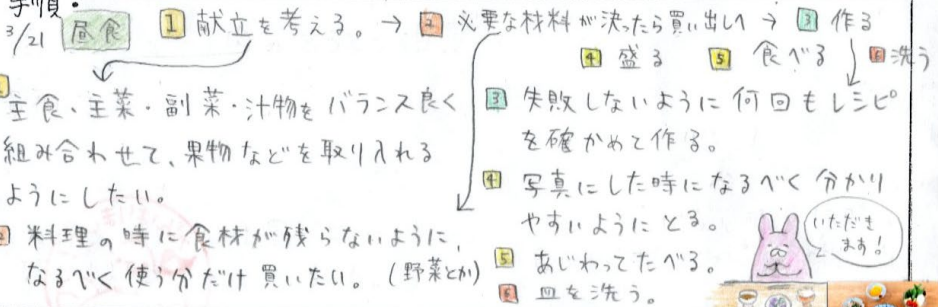 手順:
3/21 昼食 1 献立を考える。→ 2 必要な材料が決ったら買い出しへ → 3 作る
4 盛る 5 食べる 6 洗う
1 主食・主菜・副菜・汁物をバランス良く
組み合わせて、果物などを取り入れる
ようにしたい。
2 料理の時に食材が残らないように、
なるべく使う分だけ買いたい。(野菜とか)
3 失敗しないように何回もレシピ
を確かめて作る。
4 写真にした時になるべく分かり
やすいようにとる。
5 あじわってたべる。
6 皿を洗う。
いただき
ます!